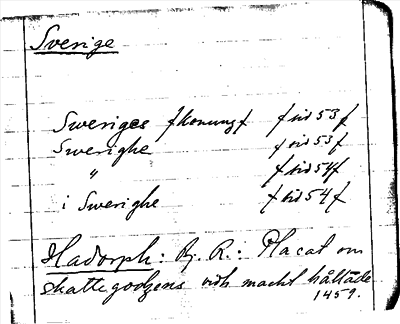 Sverige
Sweriges f konung f f sid 53 f
Swerighe f sid 53 f
" f sid 54 f
i Swerighe f sid 54 f
Hadorph: Bj. R.: Placat om
skattegodzens vidh macht hållāde
1459.